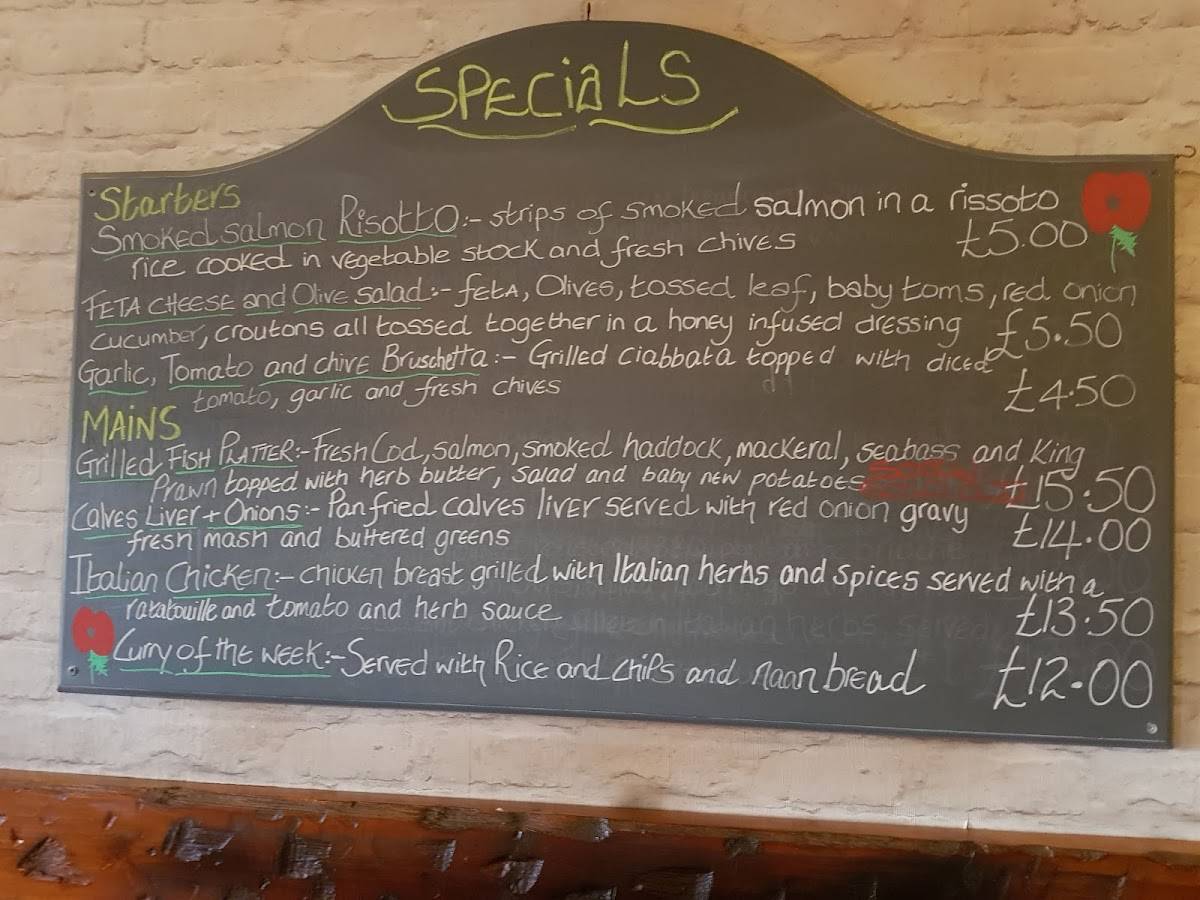 SPECiaLS
Starters
Smoked salmon Risotto:- strips of smoked salmon in a rissoto
rice cooked in vegetable stock and fresh chives £5.00
FETA CHEESE and Olive salad:- feta, Olives, tossed leaf, baby toms, red onion
cucumber, croutons all tossed together in a honey infused dressing £5.50
Garlic, Tomato and chive Bruschetta:- Grilled ciabbata topped with diced
tomato, garlic and fresh chives £4.50
MAiNS
Grilled FISH PLATTER:- Fresh Cod, salmon, smoked haddock, mackeral, seabass and King
Prawn topped with herb butter, salad and baby new potatoes £15.50
Calves Liver + Onions:- Pan fried calves liver served with red onion gravy
fresh mash and buttered greens £14.00
Italian Chicken:- chicken breast grilled with Italian herbs and spices served with a
ratatouille and tomato and herb sauce £13.50
Curry of the week:- Served with Rice and chips and naan bread £12.00